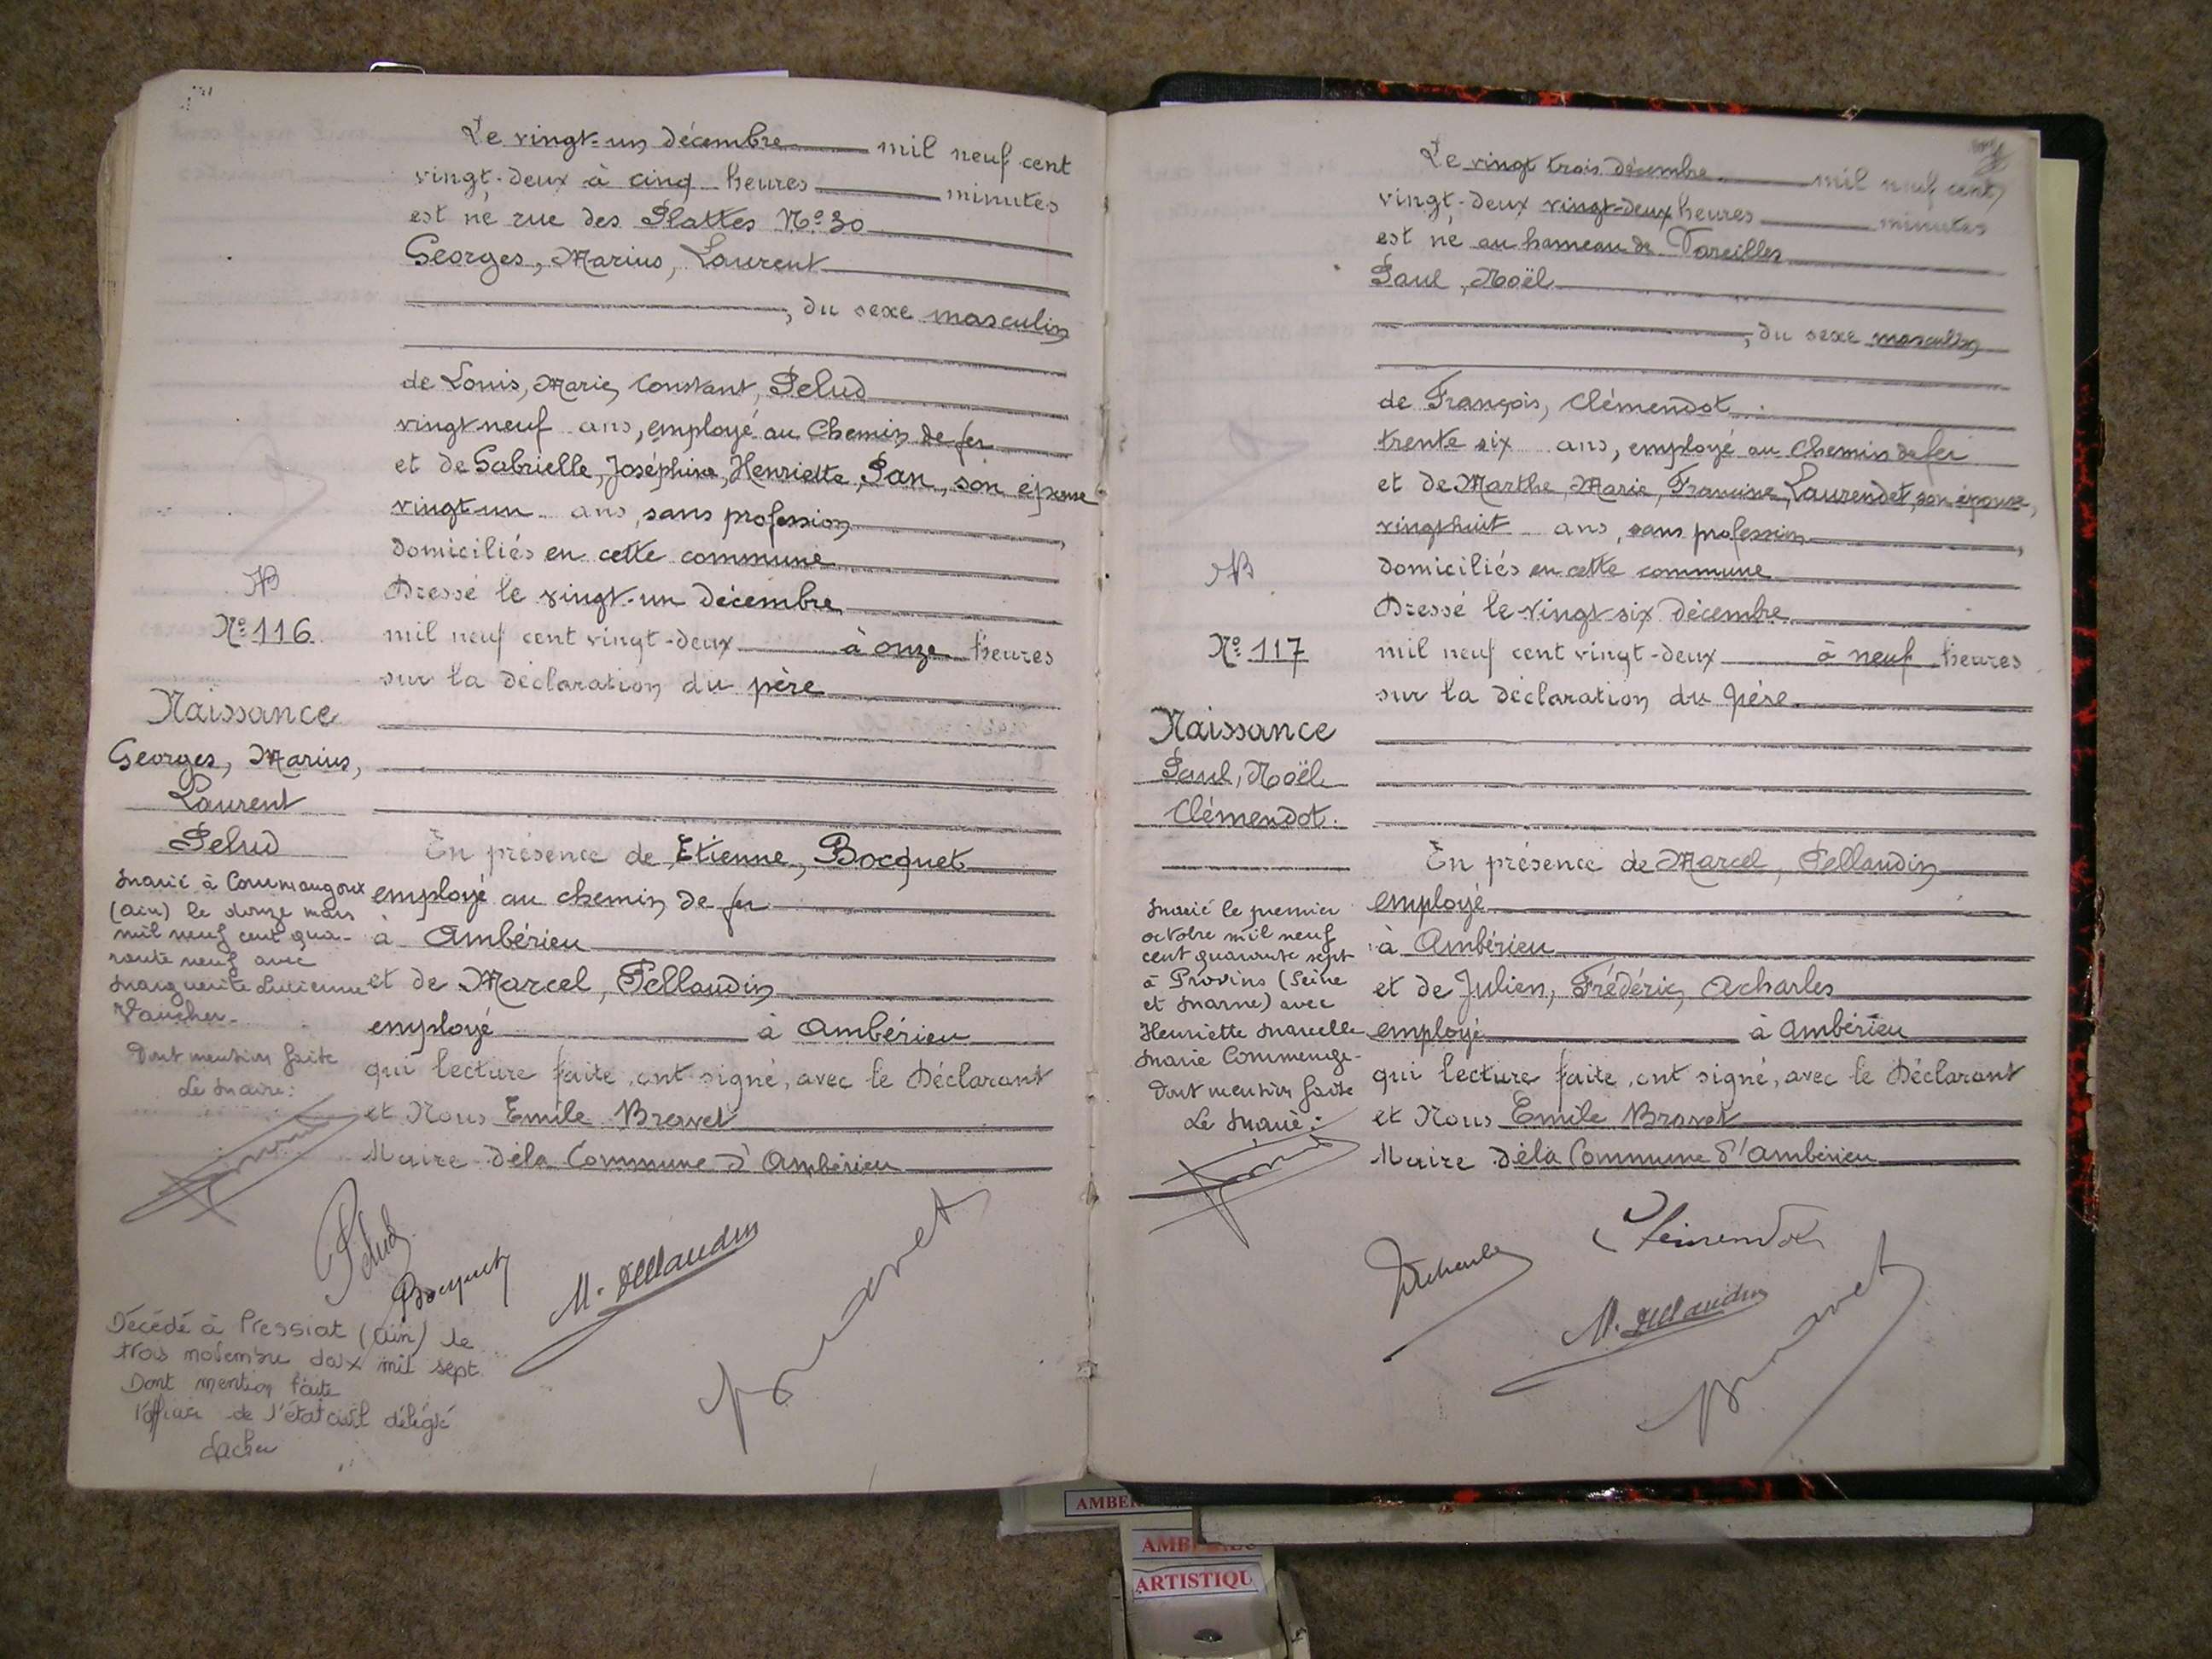 Le vingt-un décembre mil neuf cent
vingt-deux à cinq heures minutes
est né rue des Plattes No 30
Georges, Marius, Laurent
, du sexe masculin
de Louis, Marie, Constant, Pelud
vingt neuf ans, employé au Chemin de fer
et de Gabrielle, Joséphine, Henriette, Pan, son épouse
vingt-un ans, sans profession,
domiciliés en cette commune
Dressé le vingt-un décembre
mil neuf cent vingt-deux à onze heures
sur la déclaration du père
En présence de Etienne, Bocquet
employé au chemin de fer
à Ambérieu
et de Marcel, Pellaudin
employé à Ambérieu
qui lecture faite, ont signé, avec le Déclarant
et Nous Emile Bravet
Maire de la Commune d'Ambérieu
No 116
Naissance
Georges, Marius,
Laurent
Pelud
Marié à Courmangoux
(Ain) le douze mars
mil neuf cent qua-
rante neuf avec
Marguerite Lucienne
Vaucher.
Dont mention faite
Le Maire:
Pelud
Bocquet
M. Pellaudin
Bravet
Décédé à Pressiat (Ain) le
trois novembre deux mil sept
Dont mention faite
l'officier de l'état civil délégué
Le vingt trois décembre mil neuf cent
vingt-deux vingt-deux heures minutes
est né au hameau de Vareilles
Paul, Noël
, du sexe masculin
de François, Clémendot
trente six ans, employé au Chemin de fer
et de Marthe, Marie, Francine, Laurendet, son épouse,
vingt huit ans, sans profession,
domiciliés en cette commune
Dressé le vingt-six décembre
mil neuf cent vingt-deux à neuf heures
sur la déclaration du père.
En présence de Marcel, Pellaudin
employé
à Ambérieu
et de Julien, Frédéric, Acharles
employé à Ambérieu
qui lecture faite, ont signé, avec le Déclarant
et Nous Emile Bravet
Maire de la Commune d'Ambérieu
No 117
Naissance
Paul, Noël
Clémendot.
Marié le premier
octobre mil neuf
cent quarante sept
à Provins (Seine
et Marne) avec
Henriette Marcelle
Marie Commenge.
Dont mention faite
Le Maire:
Clémendot
Acharles
M. Pellaudin
Bravet
AMBE
AMB
ARTISTIQU